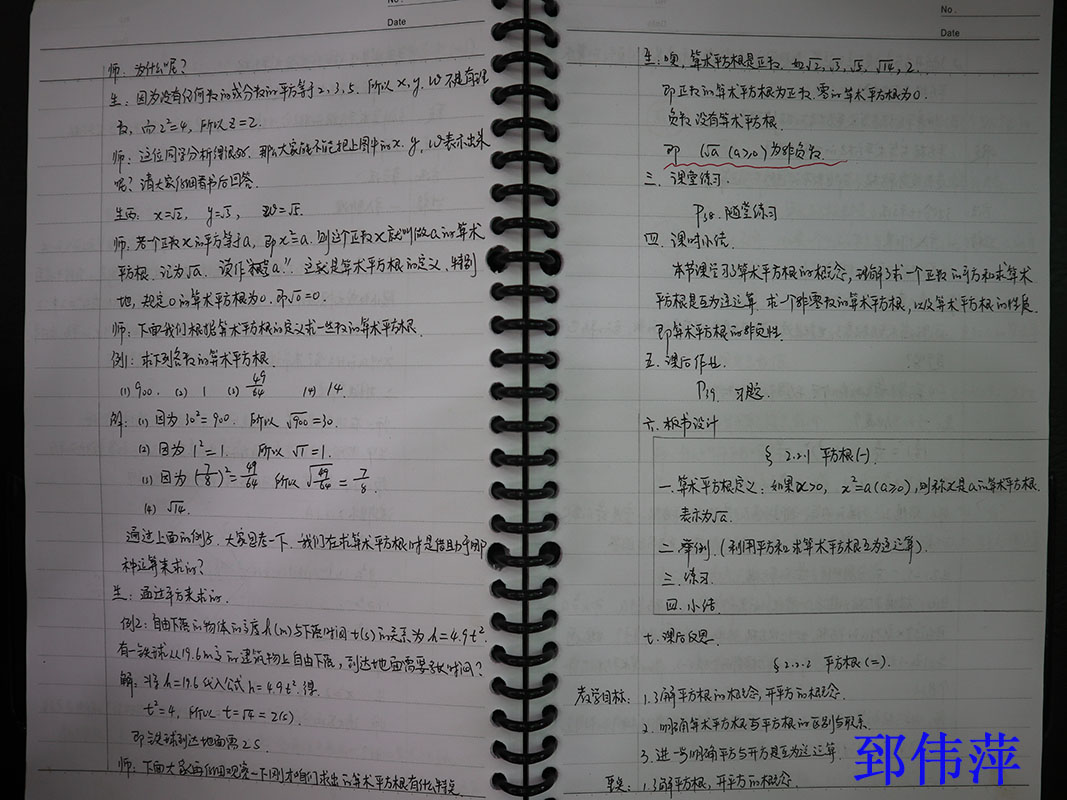 Date
师：为什么呢？
生：因为没有任何整数或分数的平方等于2，3，5．所以x，y，w不是有理
数，而2²=4，所以z=2．
师：这位同学分析得很好．那么大家能不能把上图中的x．y，w表示出来
呢？请大家仔细看书后回答．
生：x=√2， y=√3， w=√5．
师：若一个正数x的平方等于a，即x²=a．则这个正数x就叫做a的算术
平方根．记为√a．读作“根号a”．这就是算术平方根的定义．特别
地，规定0的算术平方根为0．即√0=0．
师：下面我们根据算术平方根的定义求一些数的算术平方根．
例1：求下列各数的算术平方根．
(1) 900． (2) 1 (3) 49/64 (4) 14．
解：(1) 因为30²=900． 所以√900=30．
(2) 因为1²=1． 所以√1=1．
(3) 因为(7/8)²=49/64 所以√(49/64)=7/8．
(4) √14．
通过上面的例子．大家思考一下．我们在求算术平方根时是借助于哪
种运算来求的？
生：通过平方来求的．
例2：自由下落的物体的高度h(m)与下落时间t(s)的关系为h=4.9t²．
有一铁球从19.6m高的建筑物上自由下落，到达地面需要多长时间？
解：将h=19.6代入公式h=4.9t²．得
t²=4，所以t=√4=2(s)
即铁球到达地面需2s．
师：下面大家再仔细观察一下刚才咱们求出的算术平方根有什么特点
No.
Date
生：噢，算术平方根是正数．如√2，√3，√5，√14，2．
即正数的算术平方根为正数．零的算术平方根为0．
负数没有算术平方根．
即 √a (a≥0)为非负数．
三．课堂练习．
P38．随堂练习
四．课时小结．
本节课学习了算术平方根的概念，理解了求一个正数的平方和求算术
平方根是互为逆运算．求一个非零数的算术平方根，以及算术平方根的性质．
即算术平方根的非负性．
五．课后作业．
P39． 习题．
六．板书设计
§ 2.2.1 平方根(一)．
一．算术平方根定义：如果x>0， x²=a(a≥0)，则称x是a的算术平方根．
表示为√a．
二．举例．(利用平方和求算术平方根互为逆运算)．
三．练习．
四．小结．
七．课后反思．
§ 2.2.2 平方根(二)．
教学目标：1.了解平方根的概念，开平方的概念．
2.明确算术平方根与平方根的区别与联系．
3.进一步明确平方与开方是互为逆运算．
重点：1.了解平方根，开平方的概念．
郅伟萍